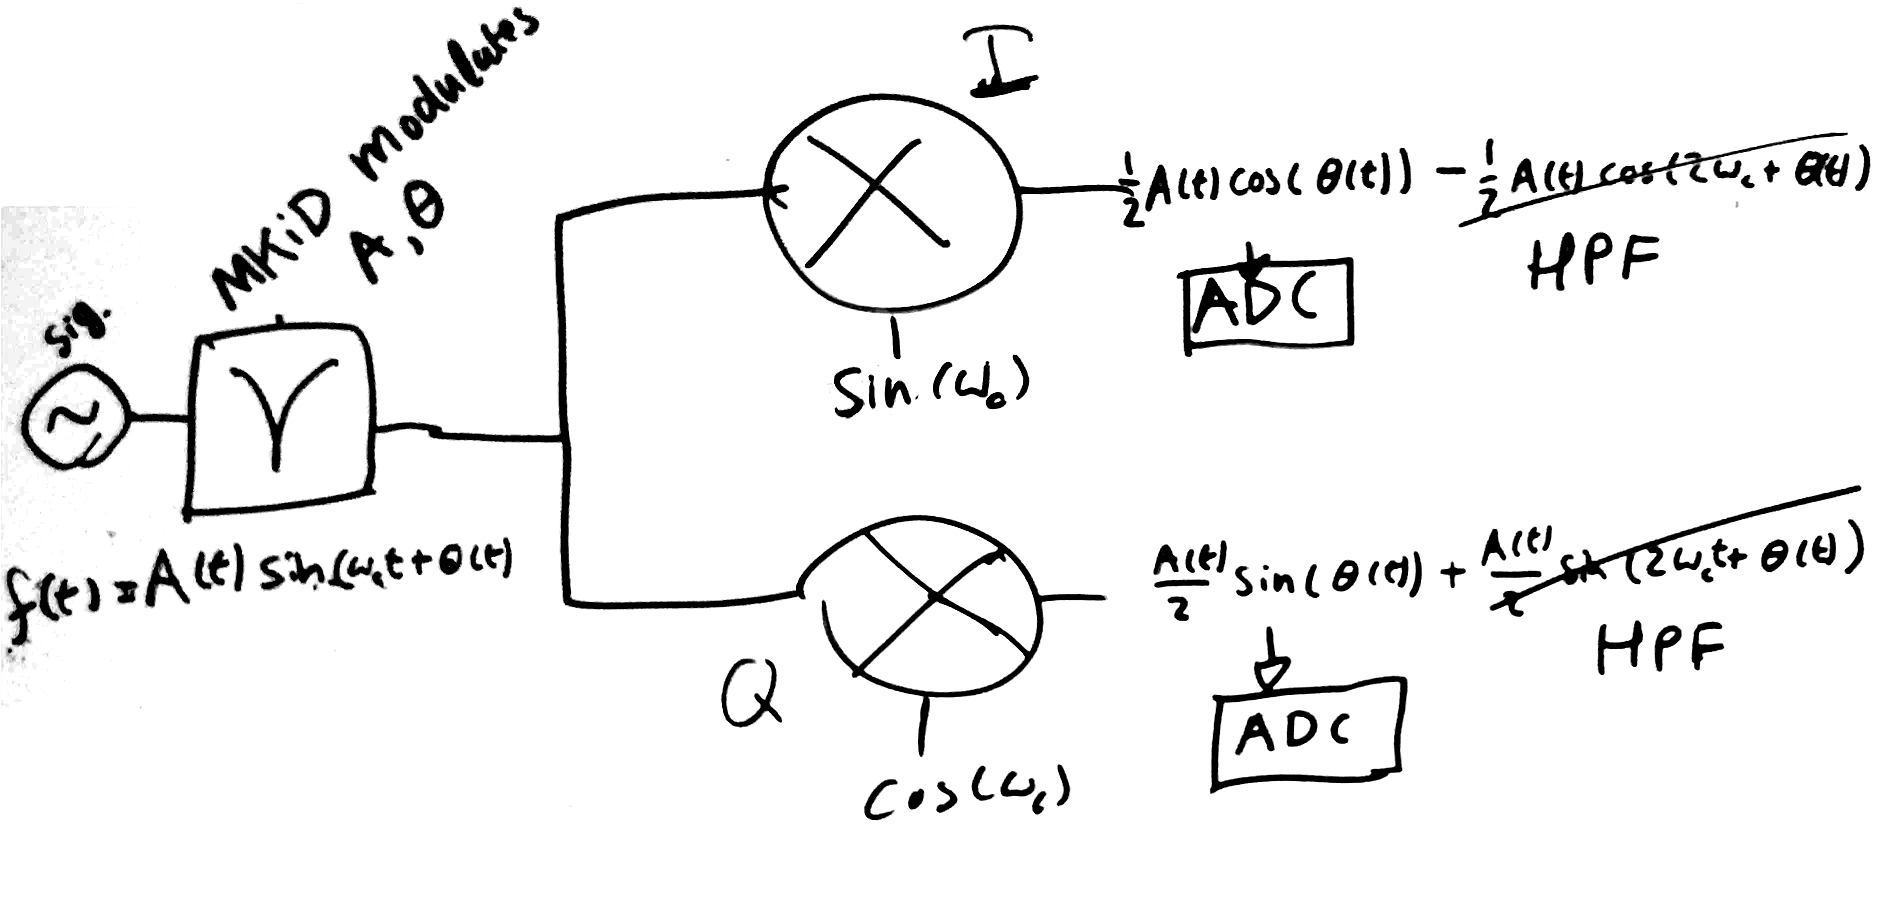 MKiD modulates
A, θ
sig.
f(t) = A(t) sin(ω_c t + θ(t)
I
Sin (ω_c)
½ A(t) cos( θ(t)) - ½ A(t) cos(2ω_c + θ(t))
HPF
ADC
Q
Cos(ω_c)
A(t)/2 sin( θ(t)) + A(t)/2 sin (2ω_c t + θ(t))
HPF
ADC